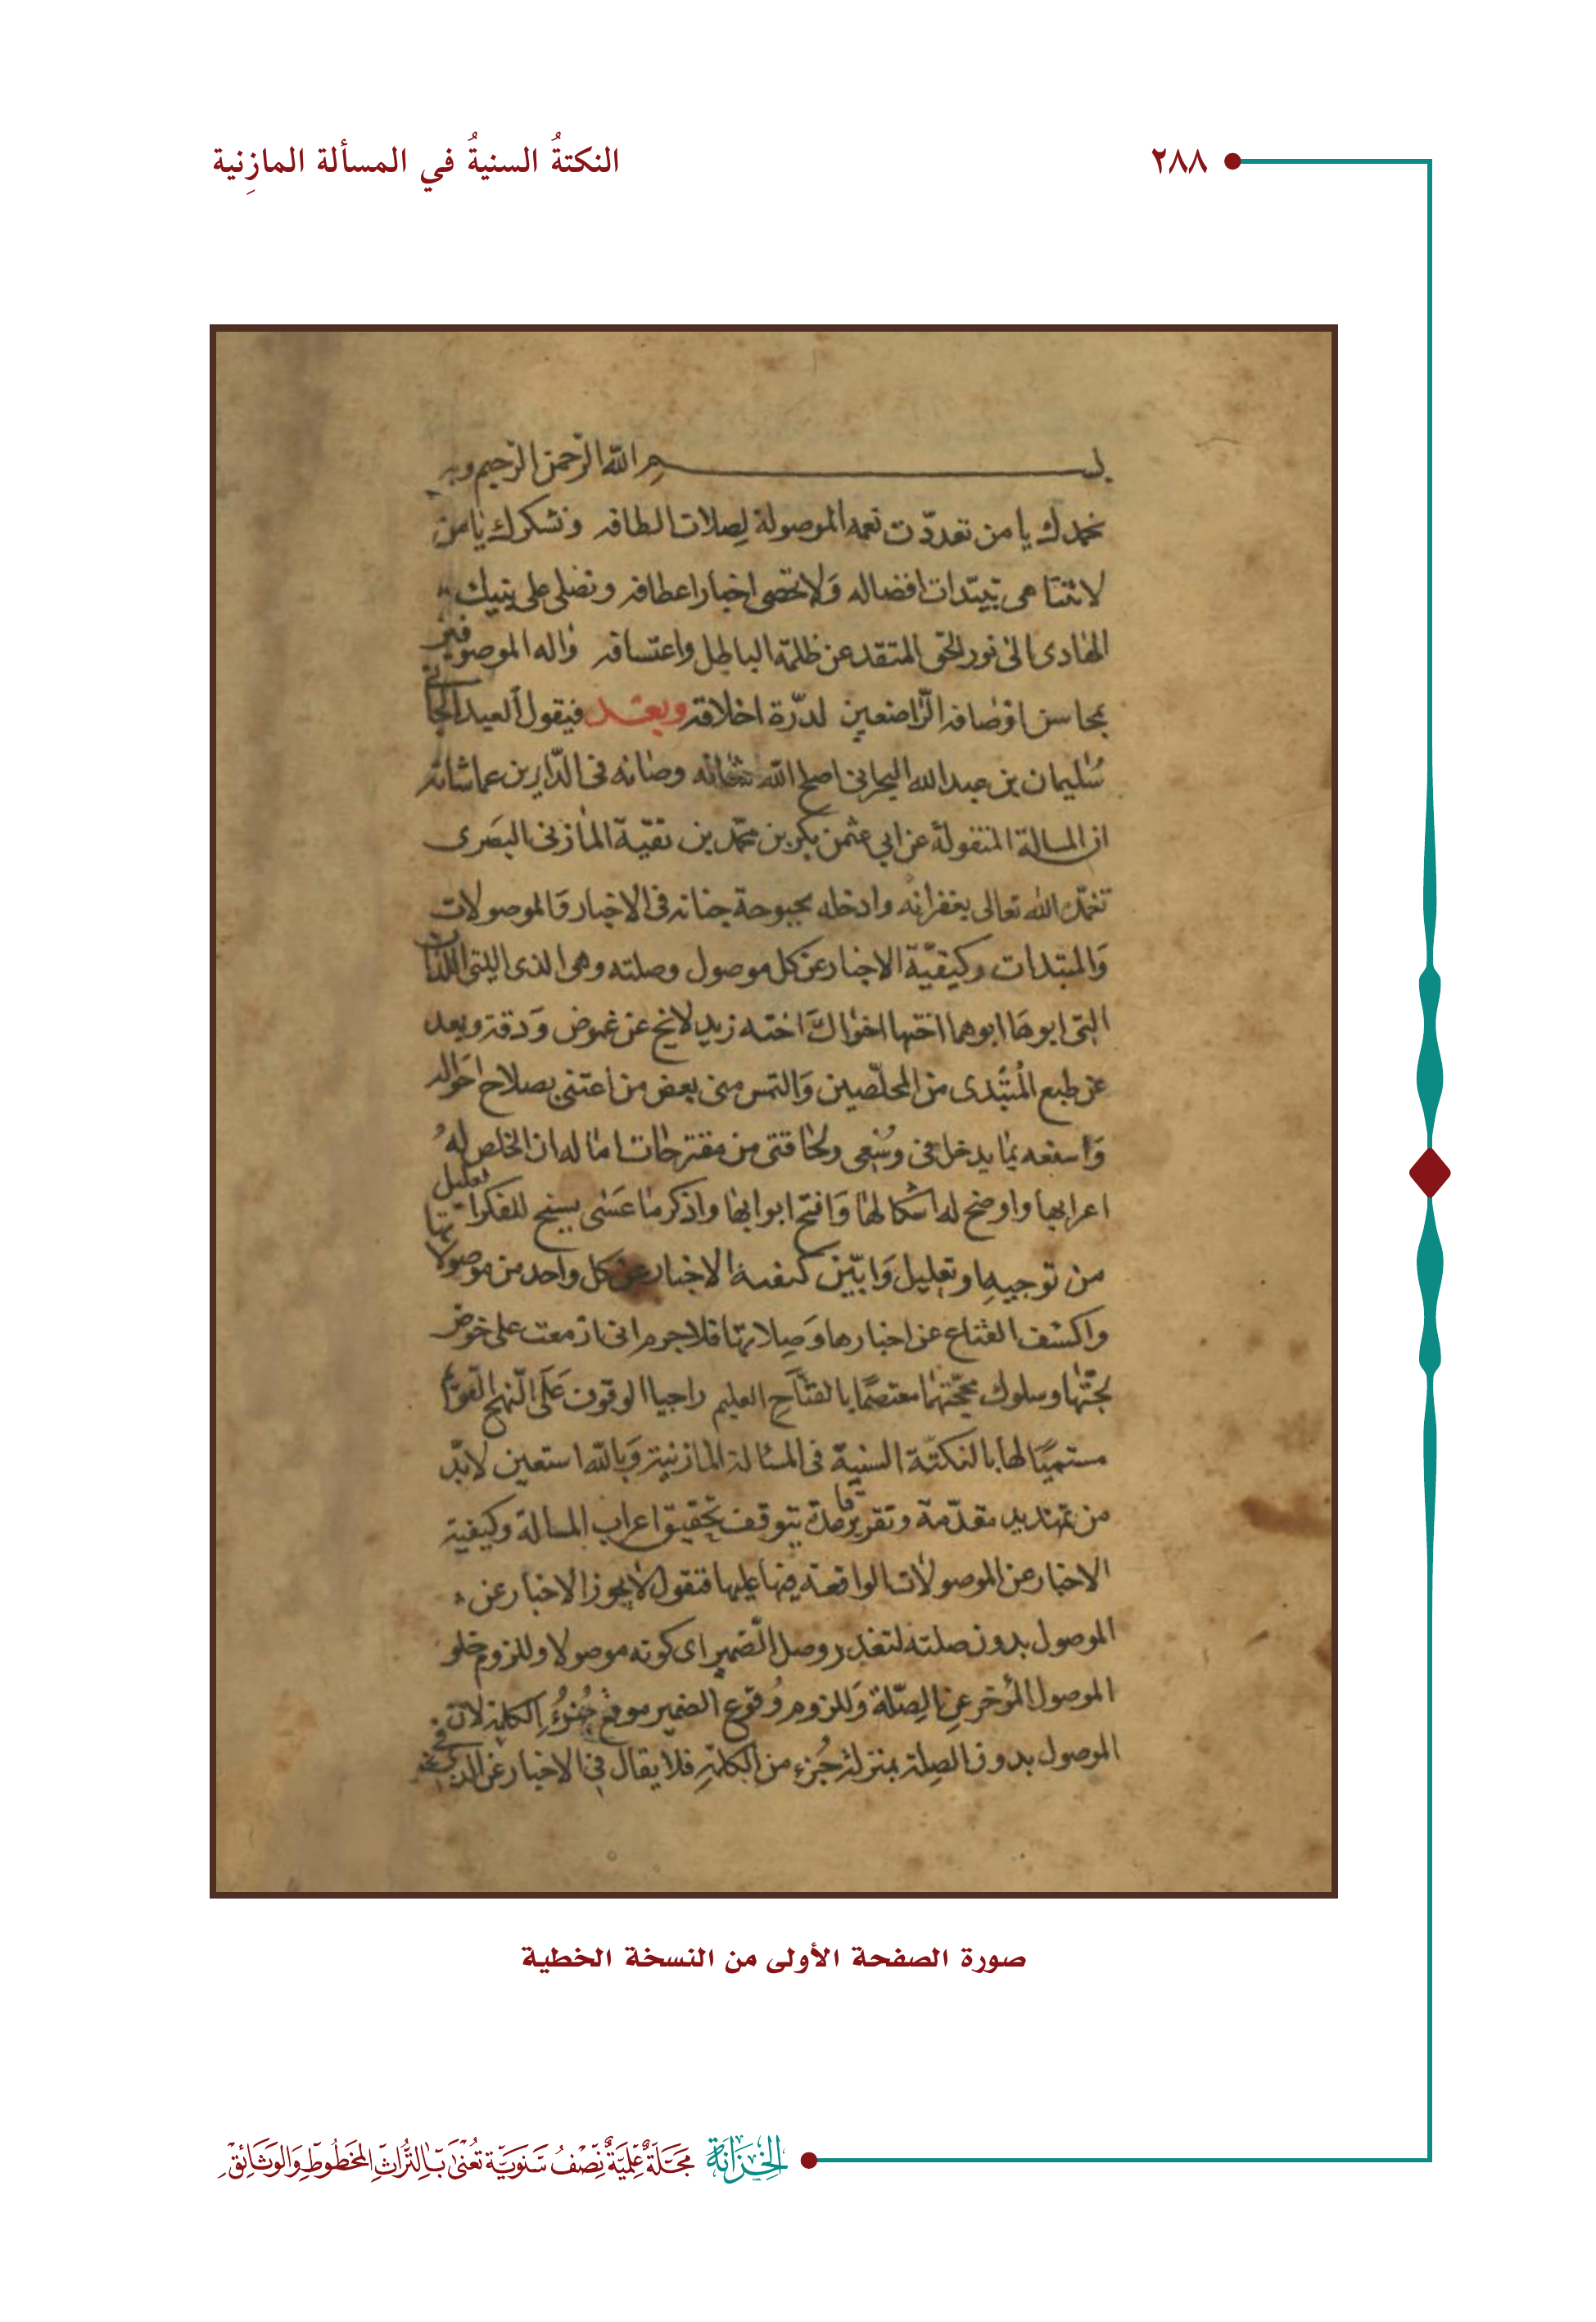 ٢٨٨
النكتةُ السنيةُ في المسألة المازِنية
بسم الله الرّحمن الرّحيم وبه
نحمدك يا من تعددّت نعمه الموصولة لِصلات الطافه ونشكرك يا من
لا تتناهى مبتدات افضاله وَلا تحصى اخبار اعطافه ونصلى على نبيك
الهادى الى نور الحق المنقد عن ظلمة الباطل واعتسافه واله الموصوفين
بمحاسن اوصافه الرّاضعين لدرّة اخلاقه وبعد فيقول العبد الجانى
سُليمان بن عبد الله البحرانى اصلح الله شانه وصانه فى الدّارين عما شانه
ان المسالة المنقولة عن ابي عثمن بكر بن محمّد بن بقيّة المازنى البصَرى
تغمّده الله تعالى بغفرانه وادخله بحبوحة جنانه فى الاخبار وَالموصولات
وَالمبتدات وكيفيّة الاخبار عن كل موصول وصلته وهى الذى التى اللذان
التى ابوهَا ابوهما اختها اخواك اخته زيد لا تخ عن غموض وَدقة وبعد
عن طبع المُبتَدى من المحلّصين وَالتمس منى بعض من اعتنى بصلاح احَواله
وَاسعفه بما يدخل فى وسُعى ولحاقتى من مقترحات اماله ان الخلص لهُ
اعرابها واوضح له اشكالها وَافتح ابوابها واذكر ما عَسٰى يسنح للفكر تعليل
من توجيهِها وتعليل وَابيّن كيفية الاخبار عن كل واحد من موصولاتها
واكشف القناع عن اخبارها وَصِلاتها فلا جرم انى ازمعت على خوض
لجّتها وسلوك محجّتها معتصمًا بالفتّاحِ العليم راجيا الوقوف عَلَى النّهج القويم
مستميًا لها بالنكتة السنيّة فى المسئالة المازنية وَبالله استعين لا بدّ
من تمهيد مقدّمة وتقرير قاعدة يتوقف تحقيق اعراب المسالة وكيفية
الاخبار عن الموصولات الواقعة فيها عليها فنقول لا يجوز الاخبار عن
الموصول بدون صلته لتعذر وصل الضمير اى كونه موصولا وللزوم خلو
الموصول المُؤخر عن الصِّلة وَللزوم وُقوع الضمير موقع جُزءِ الكلمة لان
الموصول بدون الصِلة بمنزلة جُزءِ من الكلمةِ فلا يقال فى الاخبار عن الذى فى نحو
صورة الصفحة الأولى من النسخة الخطية
الخِزَانَة مَجَلّةٌ عِلْمِيّةٌ نِصْفُ سَنَوِيّة تُعْنَى بِالتُّرَاثِ المَخطُوطِ وَالوَثَائِقِ